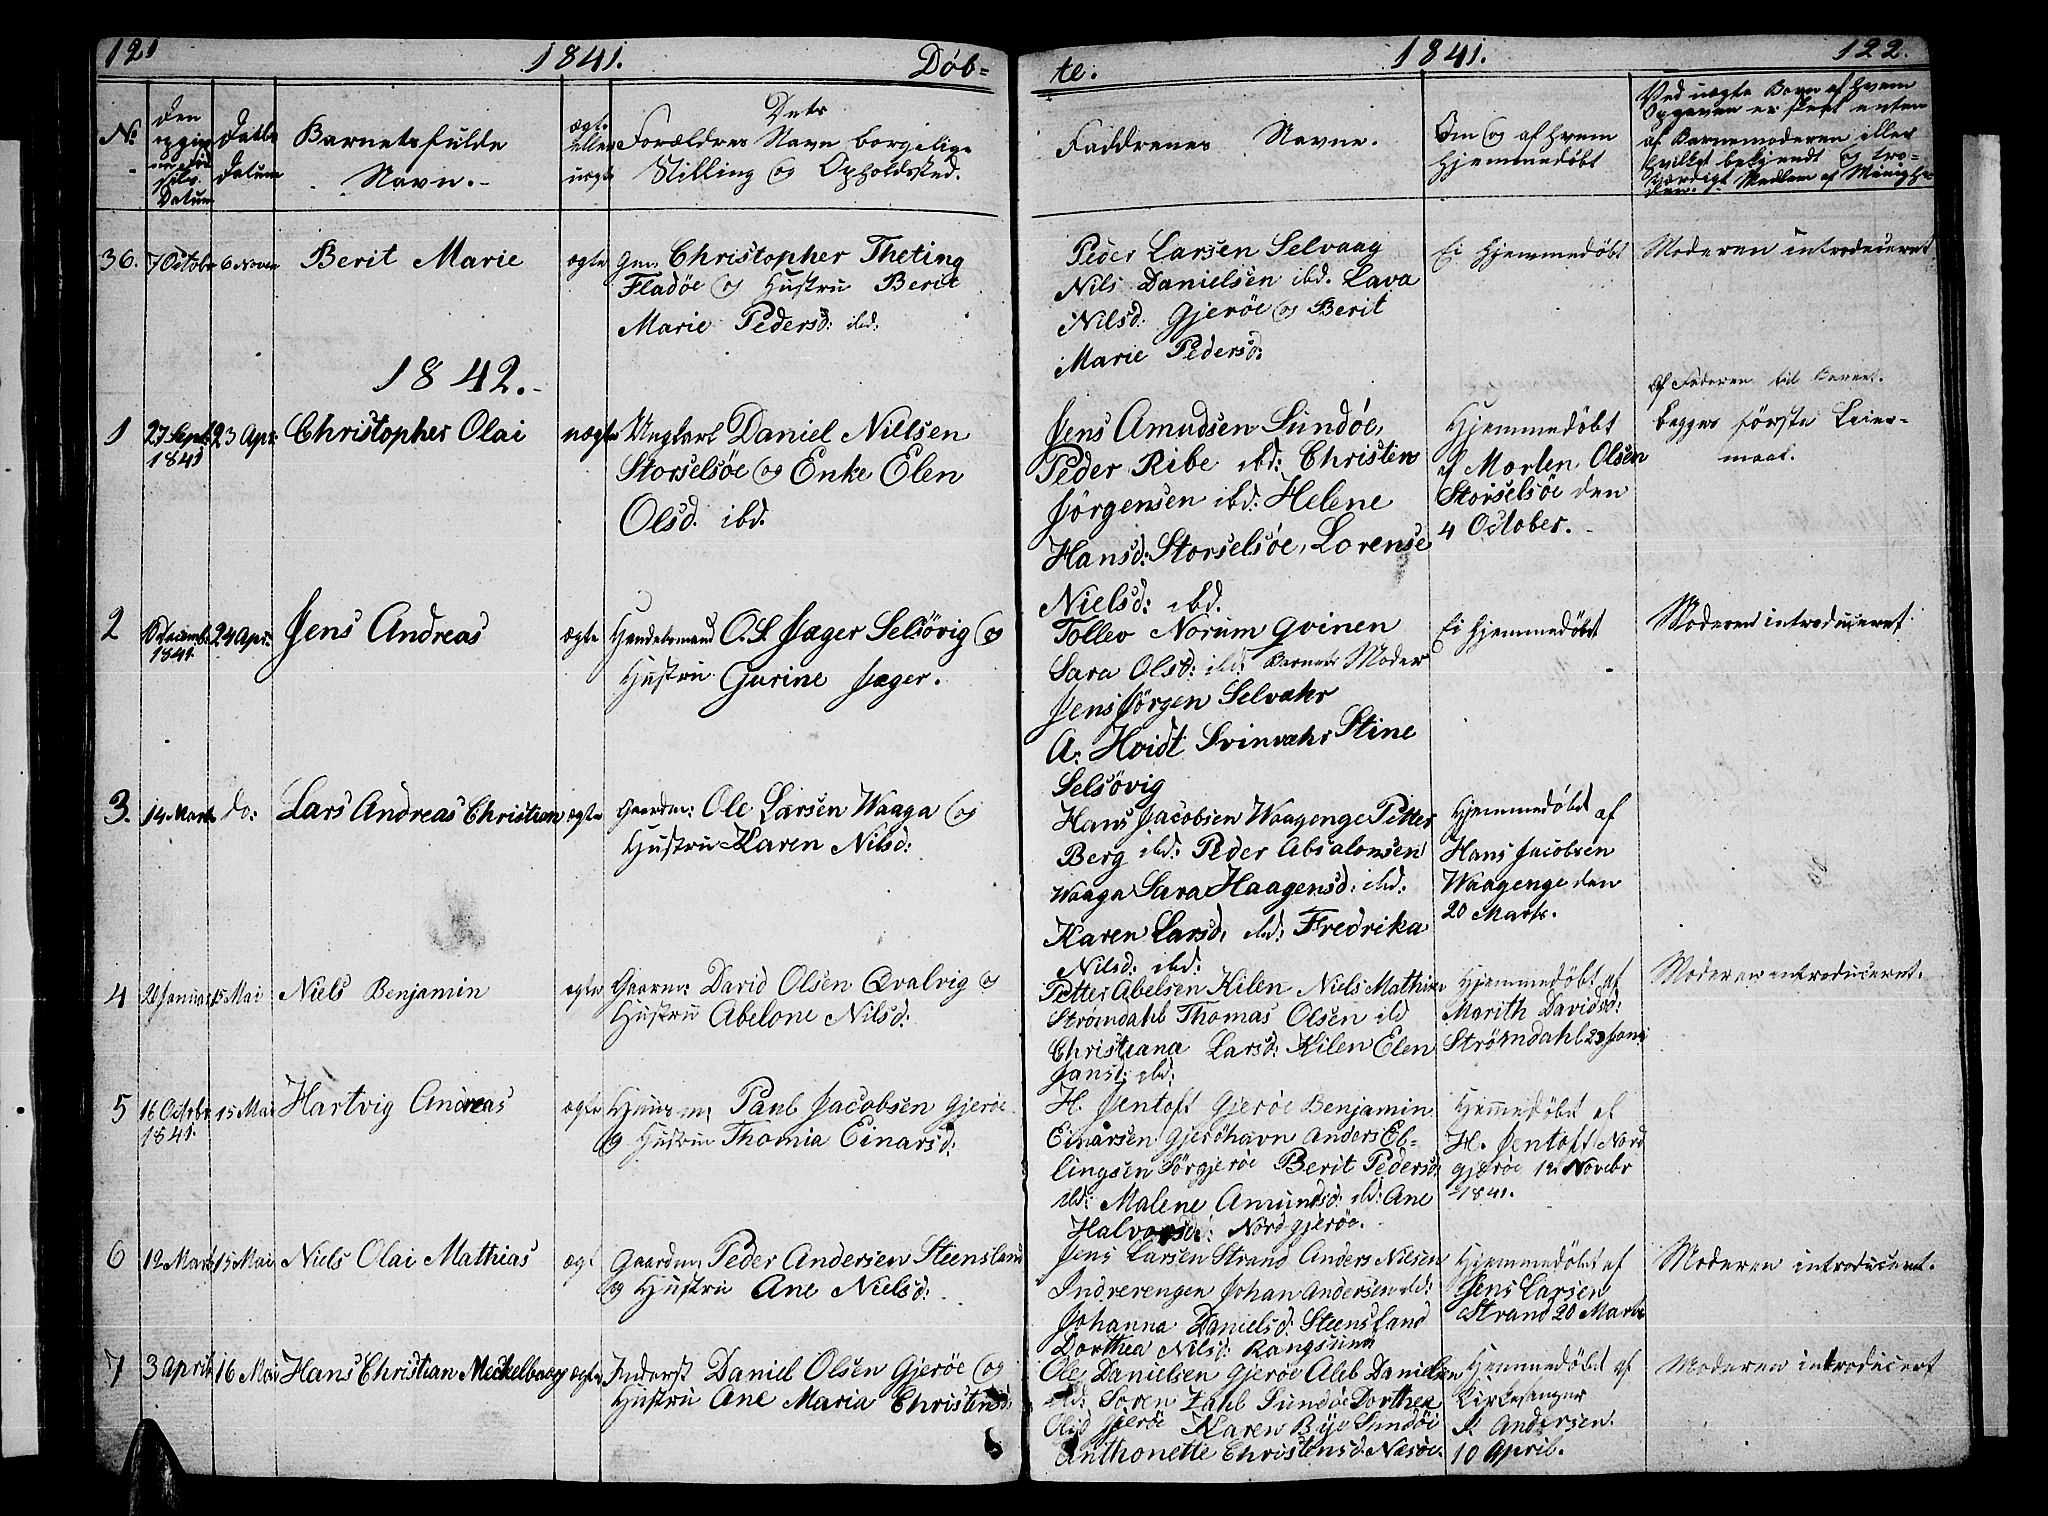 121 1841. Døb=
te. 1841. 122.
No.
Den
Datum
Datum
Barnets fulde
Navn.
ægte
eller
uægte
Dets
Forældres Navn borgelige
Stilling og Opholdssted.
Faddrenes Navne.
Om og af hvem
hjemmedøbt
Ved uægte Børn af hvem
Opgaven er skeet enten
af Barnemoderen eller
hvilket bekjendt og tro-
værdigt Medlem af Menighe-
den.
36. 7 Octobr 6 Novem Berit Marie ægte Christopher Theting
Fladøe og Hustru Berit
Marie Pedersd: ibd:
Peder Larsen Selvaag
Nils Danielsen ibd. Lava
Nilsd: Gjerøe og Berit
Marie Pedersd:
Ei hjemmedøbt
Moderen introduceret
1842.
1 27 Septb 1841 23 Apr: Christopher Olai uægte Ungkarl Daniel Nielsen
Storselsøe og Enke Elen
Olsd. ibd.
Jens Amudsen Sundøe,
Peder Ribe ibd: Christen
Jørgensen ibd: Helene
Hansd: Storselsøe, Lorense
Nielsd: ibd.
Hjemmedøbt
af Morten Olsen
Storselsøe den
4 October.
Af Faderen til Barnet.
begges første Leier-
maal.
2 Decembr 1841. 24 Apr: Jens Andreas ægte Handelsmand O. S. Jæger Selsövig og
Hustru Gurine Jæger.
Tollev Norum Qvinen
Sara Olsd: ibd: Barnets Moder
Jens Jörgen Selvahr
A. Hvidt Svinvahr Stine
Selsövig
Ei hjemmedøbt
Moderen introduceret
3. 14 Marts do: Lars Andreas Christian ægte Gaardm: Ole Larsen Waaga og
Hustru Karen Nilsd:
Hans Jacobsen Waagenge Petter
Berg ibd: Peder Absalonsen
Waaga Sara Haagensd: ibd:
Karen Larsd: ibd: Fredrika
Nilsd: ibd:
Hjemmedøbt af
Hans Jacobsen
Waagenge den
20 Marts.
4 Januar 15 Mai Niels Benjamin ægte Gaarm: David Olsen Qvalvig og
Hustru Abelone Nilsd:
Petter Abelsen Kilen Niels Mathisen
Strømdahl Thomas Olsen ibd
Christiana Larsd: Kilen Elen
Jansd: ibd:
Hjemmedøbt af
Marith Davidsd:
Strömdahl 23 Janu
Moderen introduceret.
5 16 Octbr 1841. 15 Mai Hartvig Andreas ægte Huusm: Paul Jacobsen Gjerøe
og Hustru Thomia Einarsd:
H. Jentoft Gjerøe Benjamin
Einarsen Gjeröhavn Anders Eb-
lingsen Sörgjeröe Berit Pedersd
ibd: Malene Amundsd: ibd: Ane
Halvorsd: Nordgjeröe.
Hjemmedøbt af
H. Jentoft Nord
gjerøe 12 Novebr
1841.
6 12 Marts 15 Mai Niels Olai Mathias ægt Gaardm: Peder Andersen Steensland
og Hustru Ane Nielsd:
Jens Larsen Strand Anders Nilsen
Indrerengen Johan Andersen ibd:
Johanna Danielsd: Steensland
Dorthea Nilsd: Rangsund
Hjemmedøbt af
Jens Larsen
Strand 20 Marts
Moderen introduceret.
7 3 April 16 Mai Hans Christian Meckelborg ægte Inderst Daniel Olsen Gjerøe og
Hustru Ane Maria Christensd:
Ole Danielsen Gjerøe Aleb Danielsen
ibd: Soren Zahl Sundøe Dorthea
Olsd Gjerøe Karen Bye Sundöe
Anthonette Christensd: Næsöe.
Hjemmedøbt af
Kirkesanger
P. Andersen.
10 April.
Moderen introducert